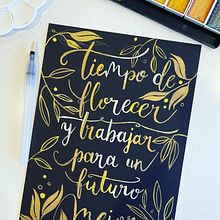 tiempo de
florecer
y trabajar
para un
futuro